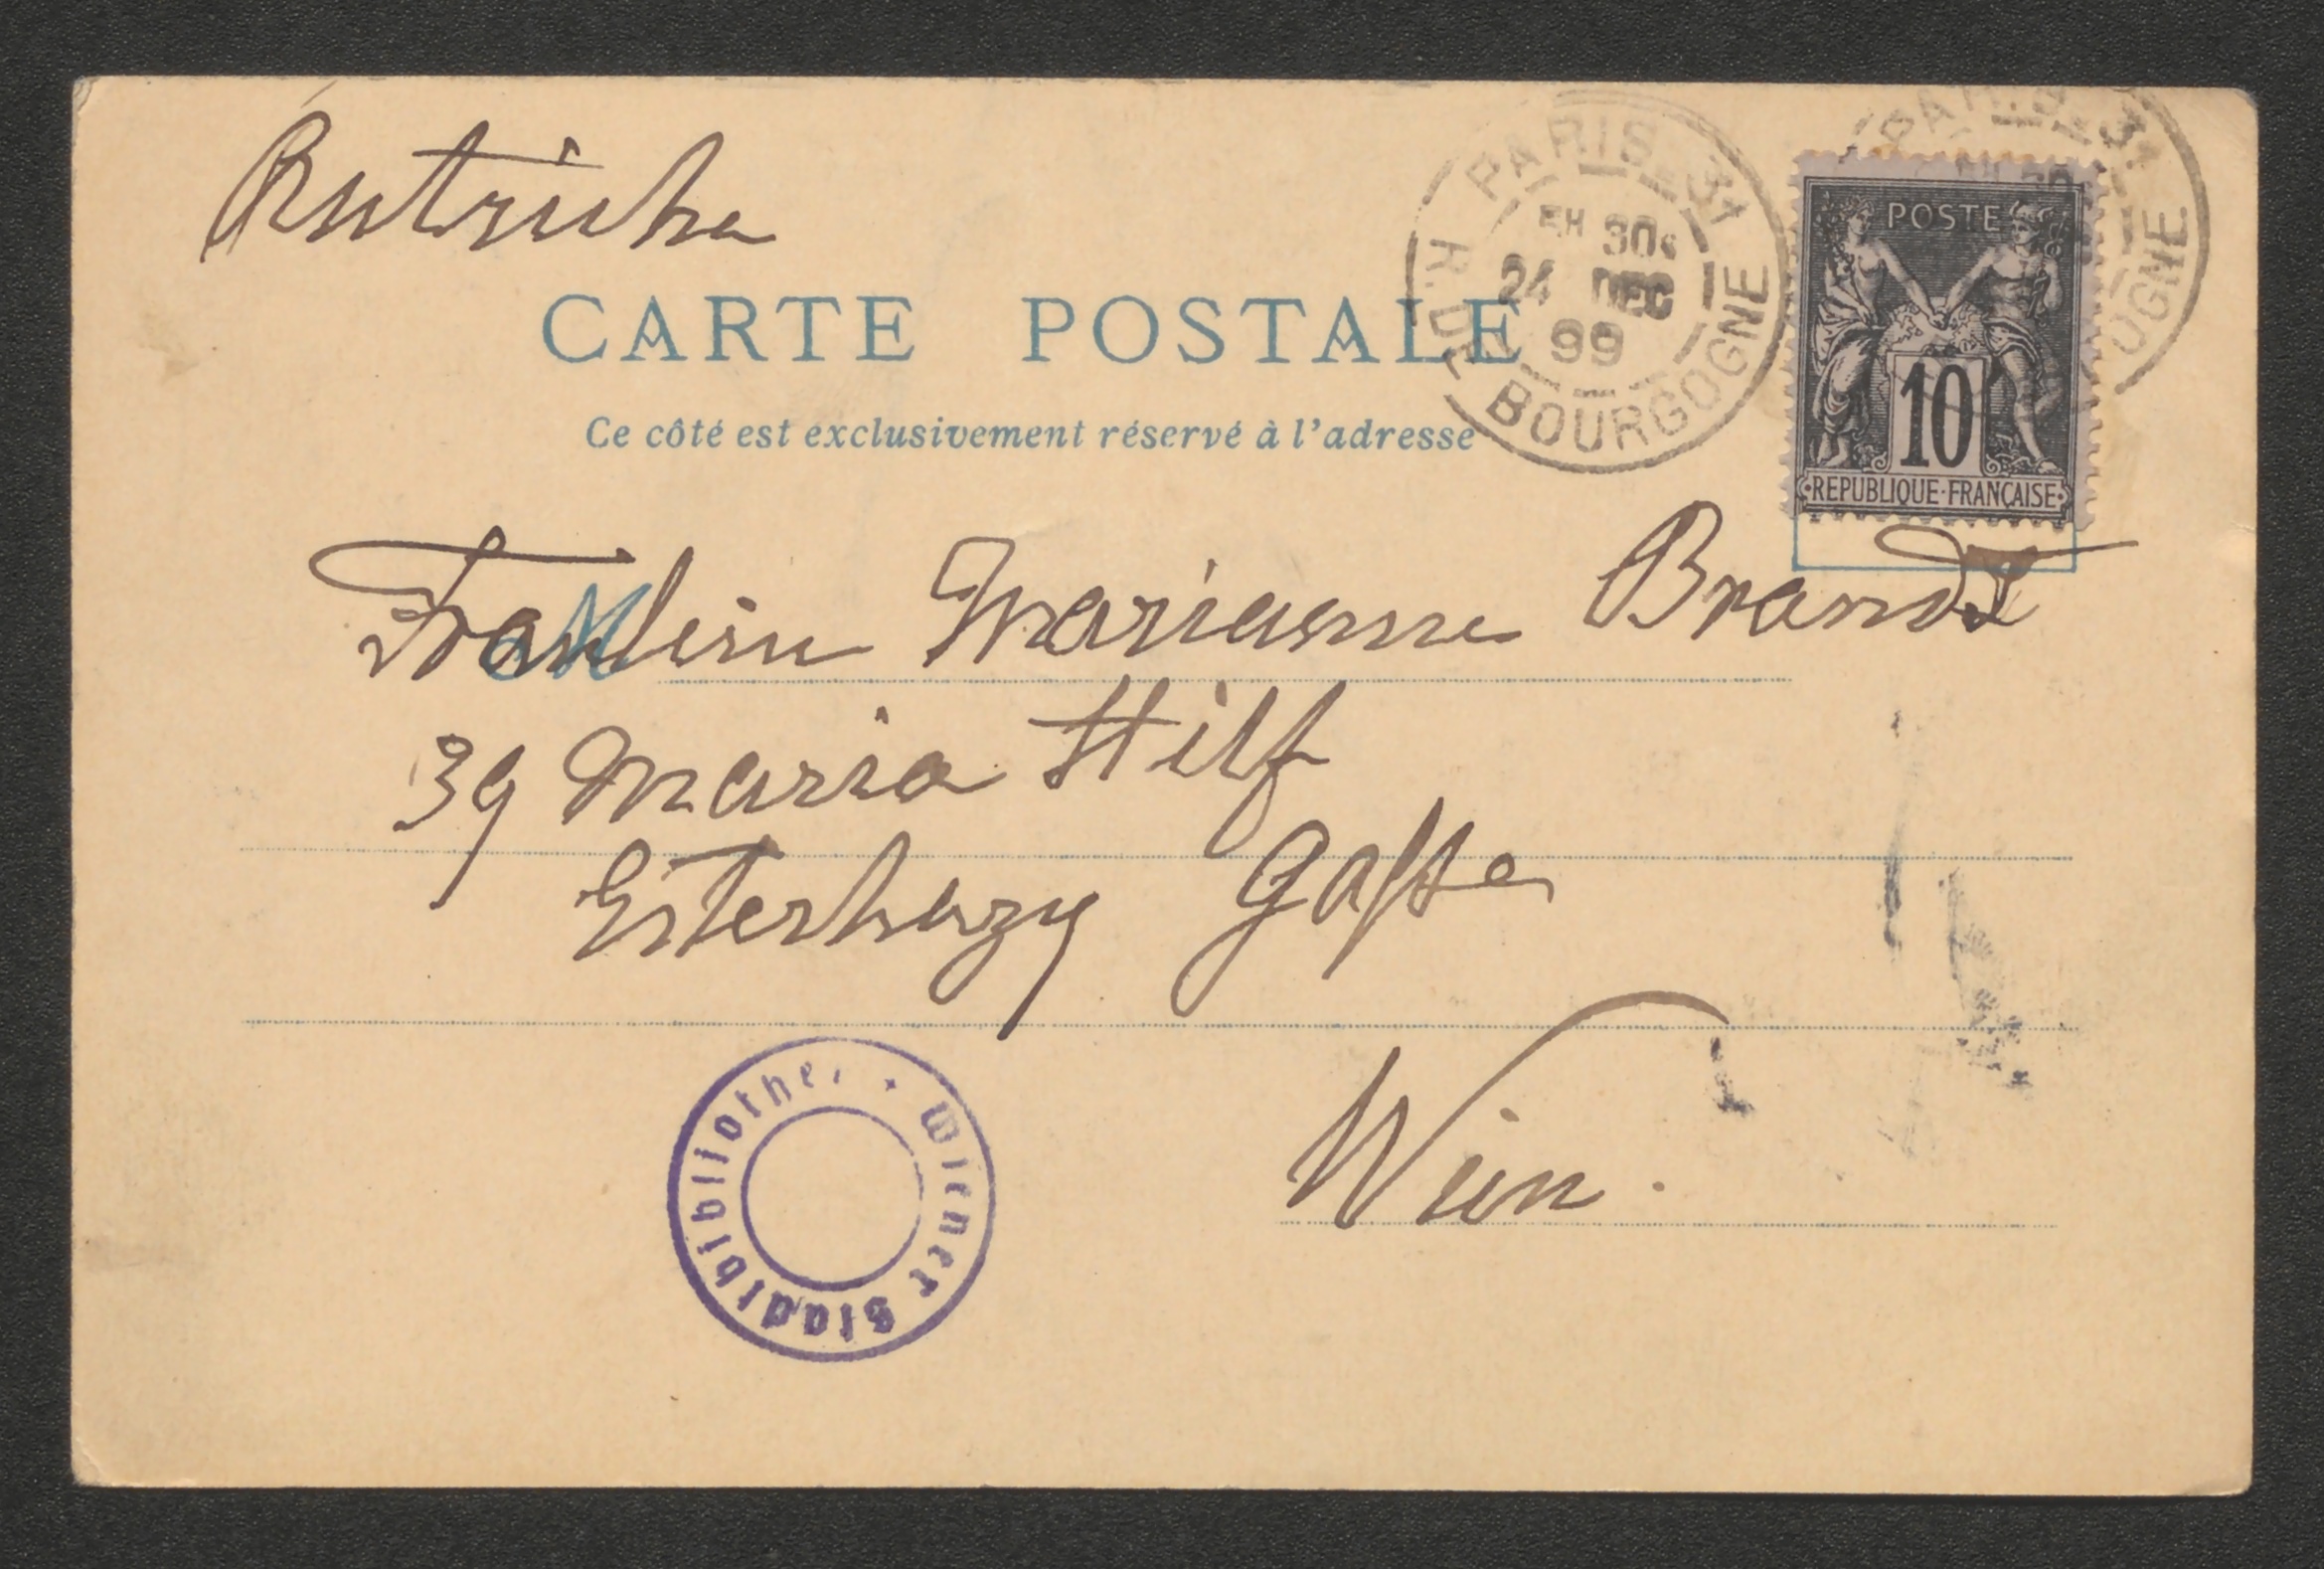 Autriche
PARIS-31
R. DE BOURGOGNE
5H 30s
24 DEC
99
POSTE
10
REPUBLIQUE·FRANÇAISE
CARTE POSTALE
Ce côté est exclusivement réservé à l'adresse
Fraulein Marianne Brandt
39 Maria Hilf
Esterhazy Gasse
Wien.
Wiener Stadtbibliothek